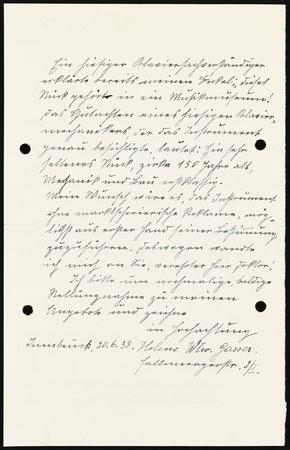 Ein hiesiger Klaviersachverständiger
erklärte bereits meinem Onkel: „dieses
Stück gehört in ein Musikmuseum!
Das Gutachten eines hiesigen Klavier-
mechanikers, der das Instrument
genau besichtigte, lautet: Ein sehr
seltenes Stück, zirka 150 Jahre alt,
Mechanik und Bau erstklassig.
Mein Wunsch wäre es, das Instrument
ohne marktschreierische Reklame, mög-
lichst aus erster Hand seiner Bestimmung
zuzuführen, deswegen wandte
ich mich an Sie, verehrter Herr Doktor!
Ich bitte um nochmalige, baldige
Stellungnahme zu meinem
Angebote und zeichne
in Hochachtung
Innsbruck, 20.6.38. Helene Wtw. Gasser.
Fallmerayerstr. 2/I.